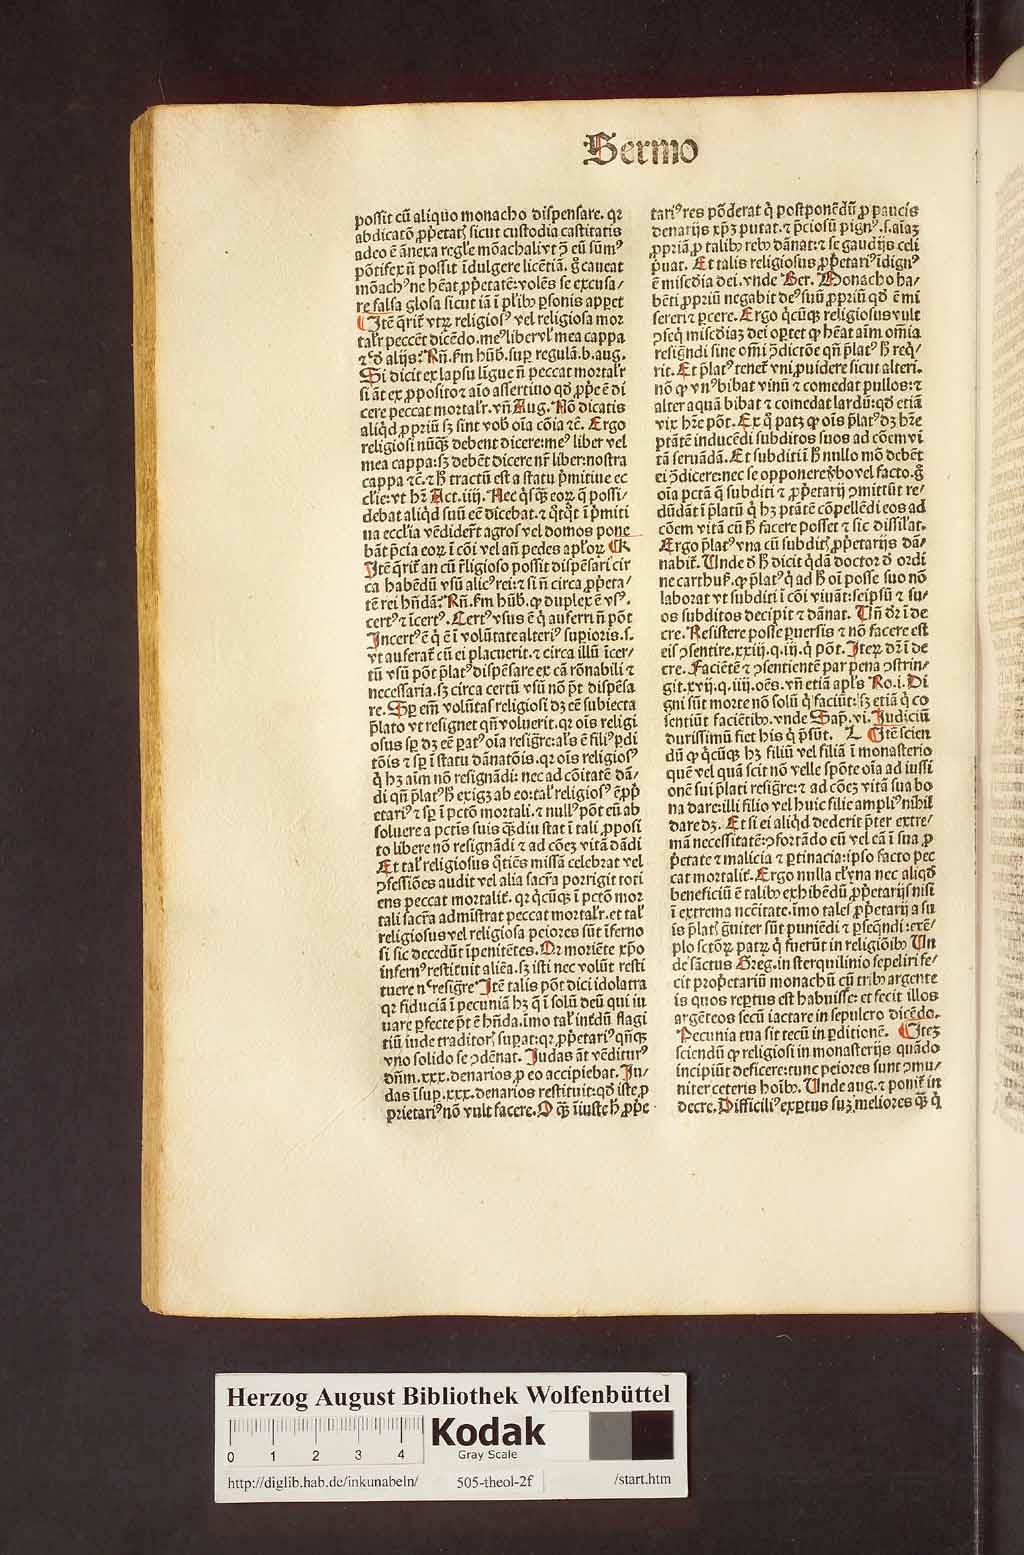 Sermo
possit cū aliquo monacho dispensare. qꝛ
abdicatō ꝓpͥetatꝭ sicut custodia castitatis
adeo ē ānexa regl̄e mōachali vt ↄ̄ eū sūmꝰ
pōtifex nō possit īdulgere licētiā. gͦ caueat
mōachꝰ ne hēat ꝓpͥetatē: volēs se excusa⸗
re falsa glosa sicut iā ī pl̄ibꝰ ꝑsonis appet
¶ Itē q̄rit̄ vtꝝ religiosꝰ vel religiosa mor
talr̄ peccēt dicēdo. meꝰ liber vl̓ mea cappa
⁊ c̄ď alijs? Rn̄. ẜm hūb̄. suꝑ regulā. b. aug.
Si dicit ex lapsu līgue nō peccat mortalr̄
si āt ex ꝓposito ⁊ aīo assertiuo qď ꝓpͥe ē di
cere peccat mortalr̄. vn̄ Aug. Nō dicatis
aliqͥd ꝓpriū sꝫ sint vob̄ oīa cōia ⁊c̄. Ergo
religiosi nūqͣꝫ debent dicere: meꝰ liber vel
mea cappa: sꝫ debēt dicere nr̄ liber: nostra
cappa ⁊c̄. ⁊ h̄ tractū est a statu pͥmitiue ec
cl̄ie: vt hr̄ Act. iiij. Nec qͥsqͣꝫ eoꝝ q̄ possi⸗
debat aliqͥd suū eē dicebat. ⁊ qͦtqͦt ī pͥmiti
ua eccl̄ia vēdiderūt agros vel domos pone
bāt p̄cia eoꝝ ī cōi vel an̄ pedes apl̄oꝝ ¶ K
Itē q̄rit̄ an cū r̄ligioso possit dispēsari cir
ca habēdū vsū alicꝰ rei: ⁊ si nō circa ꝓpͥeta⸗
tē rei hn̄dā? Rn̄. ẜm hūb̄. ꝙ duplex ē vsꝰ.
certꝰ ⁊ īcertꝰ. Certꝰ vsus ē qͥ auferri nō pōt
Incertꝰ ē qͥ ē ī volūtate alteriꝰ suꝑioris. s.
vt auferat̄ cū ei placuerit. ⁊ circa illū īcer⸗
tū vsū pōt p̄latꝰ dispēsare ex cā rōnabili ⁊
necessaria. sꝫ circa certū vsū nō pōt dispēsa
re. Sꝑ em̄ volūtas religiosi dꝫ eē subiecta
p̄lato vt resignet qn̄ voluerit. qꝛ oīs religi
osus sꝑ dꝫ eē ꝑatꝰ oīa resigr̄e: al̄s ē filiꝰ ꝑdi
tōis ⁊ sꝑ ī statu dānatōis. qꝛ oīs religiosꝰ
qͥ hꝫ aīm nō resignādi: nec ad cōitatē dā⸗
di qn̄ p̄latꝰ h̄ exigꝫ ab eo: tal̓ religiosꝰ ē ꝓpͥ
etariꝰ ⁊ sꝑ ī pctō mortali. ⁊ nullꝰ pōt eū ab
soluere a pctīs suis qͣꝫdiu stat ī tali ꝓposi
to libere nō resignādi ⁊ ad cōeꝫ vitā dādi
Et tal̓ religiosus qͦtiēs missā celebrat vel
ↄfessiōes audit vel alia sacr̄a porrigit toti
ens peccat mortalit̓. qꝛ qͥcūqꝫ ī pctō mor
tali sacr̄a admīstrat peccat mortalr̄. et tal̓
religiosus vel religiosa peiores sūt īferno
si sic decedūt īpenitētes. Qꝛ moriēte xp̄o
infernꝰ restituit aliēa. sꝫ isti nec volūt resti
tuere nͨ resigr̄e Itē talis pōt dici idolatra
qꝛ fiduciā ī pecuniā hꝫ q̄ ī solū deū qui iu
uare ꝑfecte pōt ē hn̄da. īmo tal̓ intꝭdū flagi
tiū iude traditorꝭ suꝑat: qꝛ ꝓpͥetariꝰ qn̄qꝫ
vno solido se ↄdēnat. Judas āt vēditurꝰ
dn̄m. xxx. denarios ꝓ eo accipiebat. Ju⸗
das īsuꝑ. xxx. denarios restituit: qď iste ꝓ
prietariꝰ nō vult facere. O qͣꝫ īiuste h̄ ꝓpͥe⸗
tariꝰ res pōderat qͥ postponēdū ꝓ paucis
denarijs xp̄ꝫ putat. ⁊ p̄ciosū pignꝰ. s. aīaꝫ
ꝓpriā ꝓ talibꝰ rebꝰ dānat: ⁊ se gaudijs celi
pͥuat. Et talis religiosus ꝓpͥetariꝰ īdignꝰ
ē miscd̄ia dei. vnde Ber. Monacho ha⸗
bēti ꝓpriū negabit deꝰ suū ꝓpriū qď ē mi
sereri ⁊ ꝑcere. Ergo qͥcūqꝫ religiosus vult
ↄseqͥ miscd̄iaꝫ dei oportet ꝙ hēat aīm om̄ia
resign̄di sine om̄i ↄ̄dictōe qn̄ p̄latꝰ h̄ reqͥ⸗
rit. Et p̄latꝰ tenet̓ vni ꝓuidere sicut alteri.
nō ꝙ vnꝰ bibat vinū ⁊ comedat pullos: ⁊
alter aquā bibat ⁊ comedat lardū: qď etiā
vix hr̄e pōt. Ex qͦ patꝫ ꝙ oīs p̄latꝰ dꝫ hr̄e
ptātē inducēdi subditos suos ad cōem vi
tā seruādā. Et subditi ī h̄ nullo mō debēt
ei ↄ̄dicere: nec se opponere ꝟbo vel facto. gͦ
oīa pctā q̄ subditi ⁊ ꝓpͥetarij ↄmittūt re⸗
dūdāt ī p̄latū qͥ hꝫ ptātē cōpellēdi eos ad
cōem vitā cū h̄ facere posset ⁊ sic dissil̓at.
Ergo p̄latꝰ vna cū subditꝭ ꝓpͥetarijs dā⸗
nabit̓. Unde ď h̄ dicit qͥdā doctor ď ordi
ne carthuẜ. ꝙ p̄latꝰ qͥ ad h̄ oī posse suo nō
laborat vt subditi ī cōi viuāt: seipsū ⁊ su⸗
os subditos decipit ⁊ dānat. Un̄ dr̄ ī de
cre. Resistere posse ꝑuersis ⁊ nō facere est
eis ↄsentire. xxiij. q. iij. qͥ pōt. Iteꝝ dr̄ ī de
cre. Faciētē ⁊ ↄsentientē par pena ↄstrin⸗
git. xvij. q. iiij. oēs. vn̄ etiā apl̓s Ro. i. Di
gni sūt morte nō solū qͥ faciūt: sꝫ etiā qͥ co
sentiūt faciētibꝰ. vnde Sap̄. vi. Judiciū
durissimū fiet his qͥ p̄sūt. L ¶ Itē scien
dū ꝙ qͥcūqꝫ hꝫ filiū vel filiā ī monasterio
quē vel quā scit nō velle spōte oīa ad iussi
onē sui p̄lati resigr̄e: ⁊ ad cōeꝫ vitā sua bo
na dare: illi filio vel huic filie ampliꝰ nihil
dare dꝫ. Et si ei aliqͥd dederit p̄ter extre⸗
mā necessitatē: ↄfortādo eū vel eā ī sua ꝓ
pͥetate ⁊ malicia ⁊ ꝑtinacia: ipso facto pec
cat mortalit̓. Ergo nulla el̓yna nec aliqď
beneficiū ē talibꝰ exhibēdū ꝓpͥetarijs nisi
ī extrema ncc̄itate. īmo tales ꝓpͥetarij a su
is p̄latꝭ gͣuiter sūt puniēdi ⁊ ꝑseqn̄di: exē⸗
plo sctōꝝ patꝝ qͥ fuerūt in religiōibꝰ Un
de sāctus Greg. in sterquilinio sepeliri fe⸗
cit propͥetariū monachū cū tribꝰ argente
is quos reꝑtus est habuisse: et fecit illos
argēteos secū iactare in sepulcro dicēdo.
Pecunia tua sit tecū in ꝑditionē. ¶ Iteꝫ
sciendū ꝙ religiosi in monasterijs quādo
incipiūt deficere: tunc peiores sunt ↄmu⸗
niter ceteris hoībꝰ. Unde aug. ⁊ ponit̓ in
decre. Difficiliꝰ exꝑtus suꝫ meliores qͣꝫ qͥ
Herzog August Bibliothek Wolfenbüttel
0 1 2 3 4
Kodak
Gray Scale
http://diglib.hab.de/inkunabeln/ 505-theol-2f /start.htm